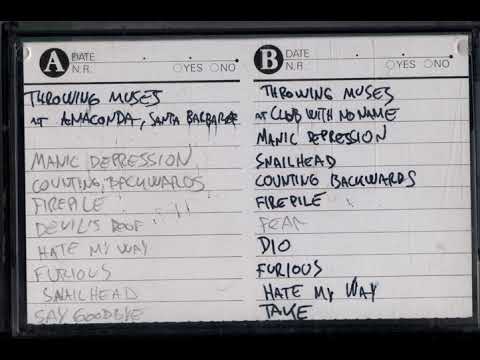 A DATE
N.R. YES NO
THROWING MUSES
AT ANACONDA, SANTA BARBARA
MANIC DEPRESSION
COUNTING BACKWARDS
FIREPILE
DEVIL'S ROOF
HATE MY WAY
FURIOUS
SNAILHEAD
SAY GOODBYE
B DATE
N.R. YES NO
THROWING MUSES
AT CLUB WITH NO NAME
MANIC DEPRESSION
SNAILHEAD
COUNTING BACKWARDS
FIREPILE
FEAR
DIO
FURIOUS
HATE MY WAY
TAKE